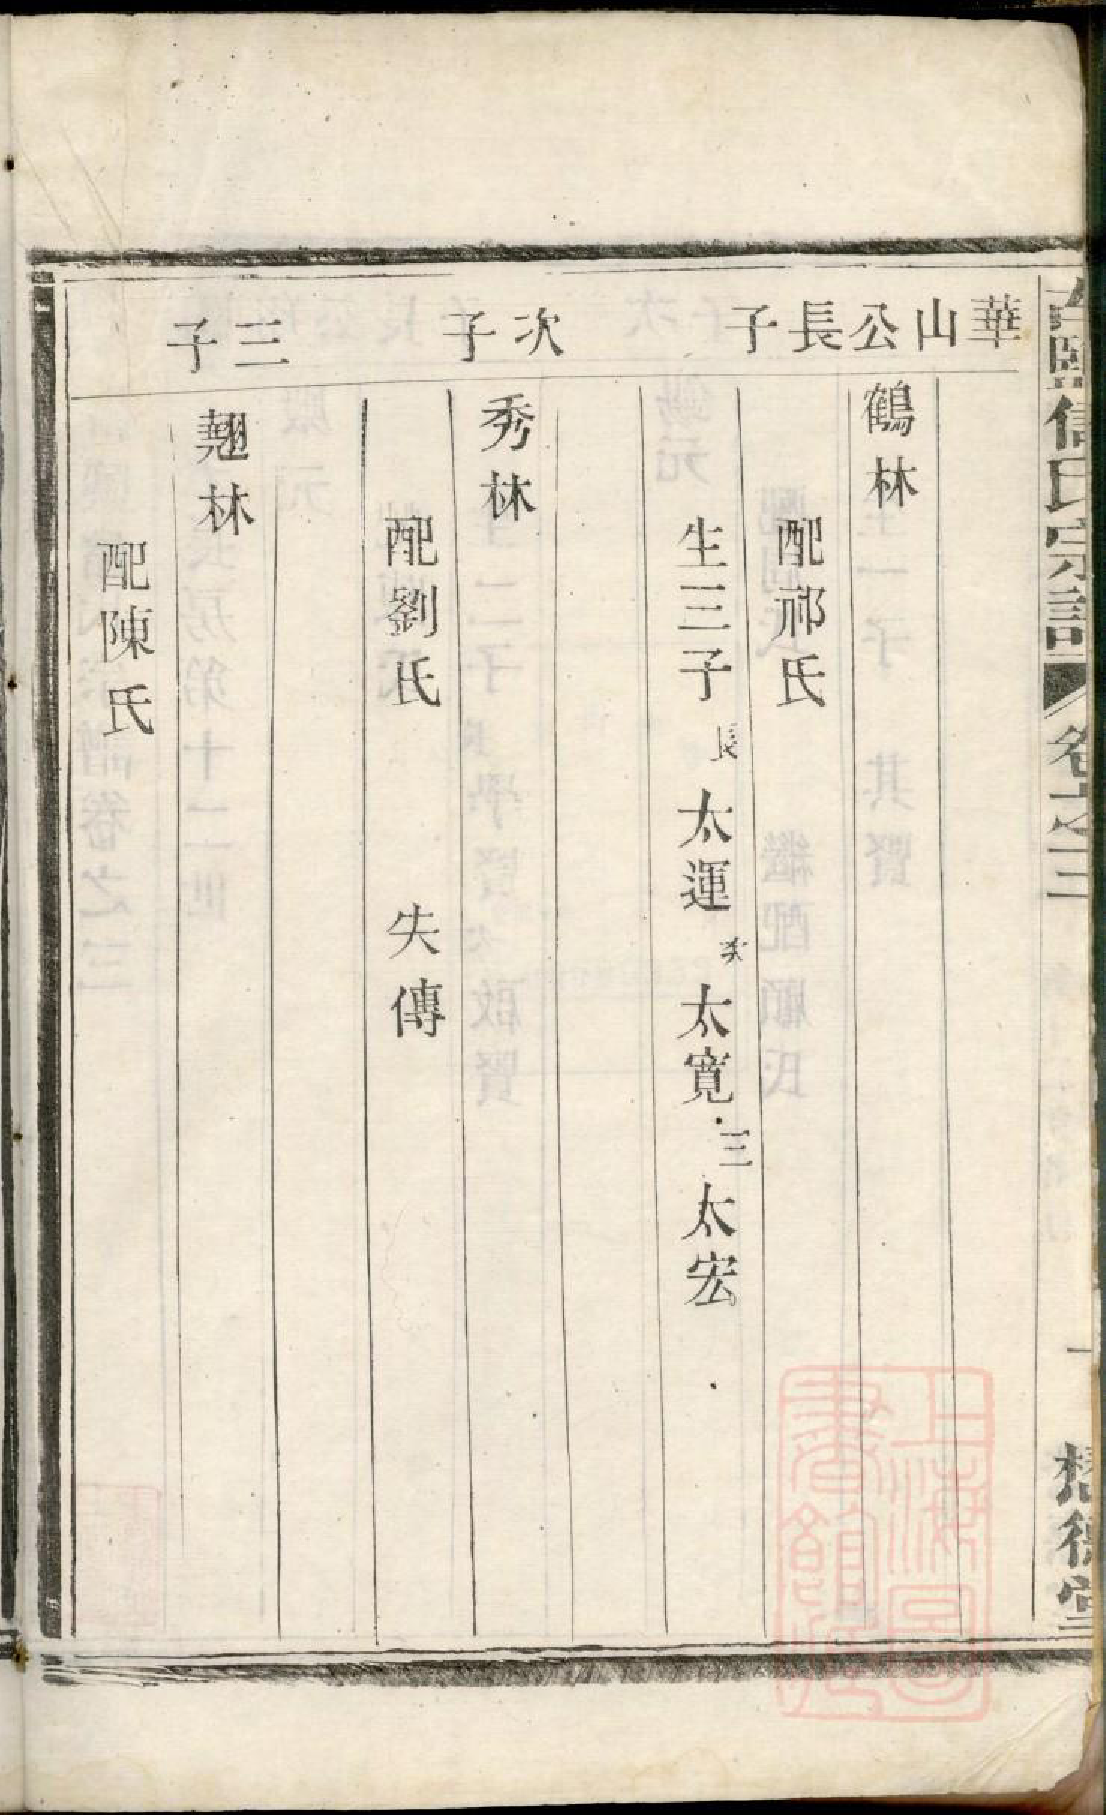 華山公長子
鶴林
配祁氏
生三子 長 太運 次 太寬 三 太宏
次子
秀林
配劉氏 失傳
三子
翹林
配陳氏
氏宗譜 卷之三 一
上海圖書館藏